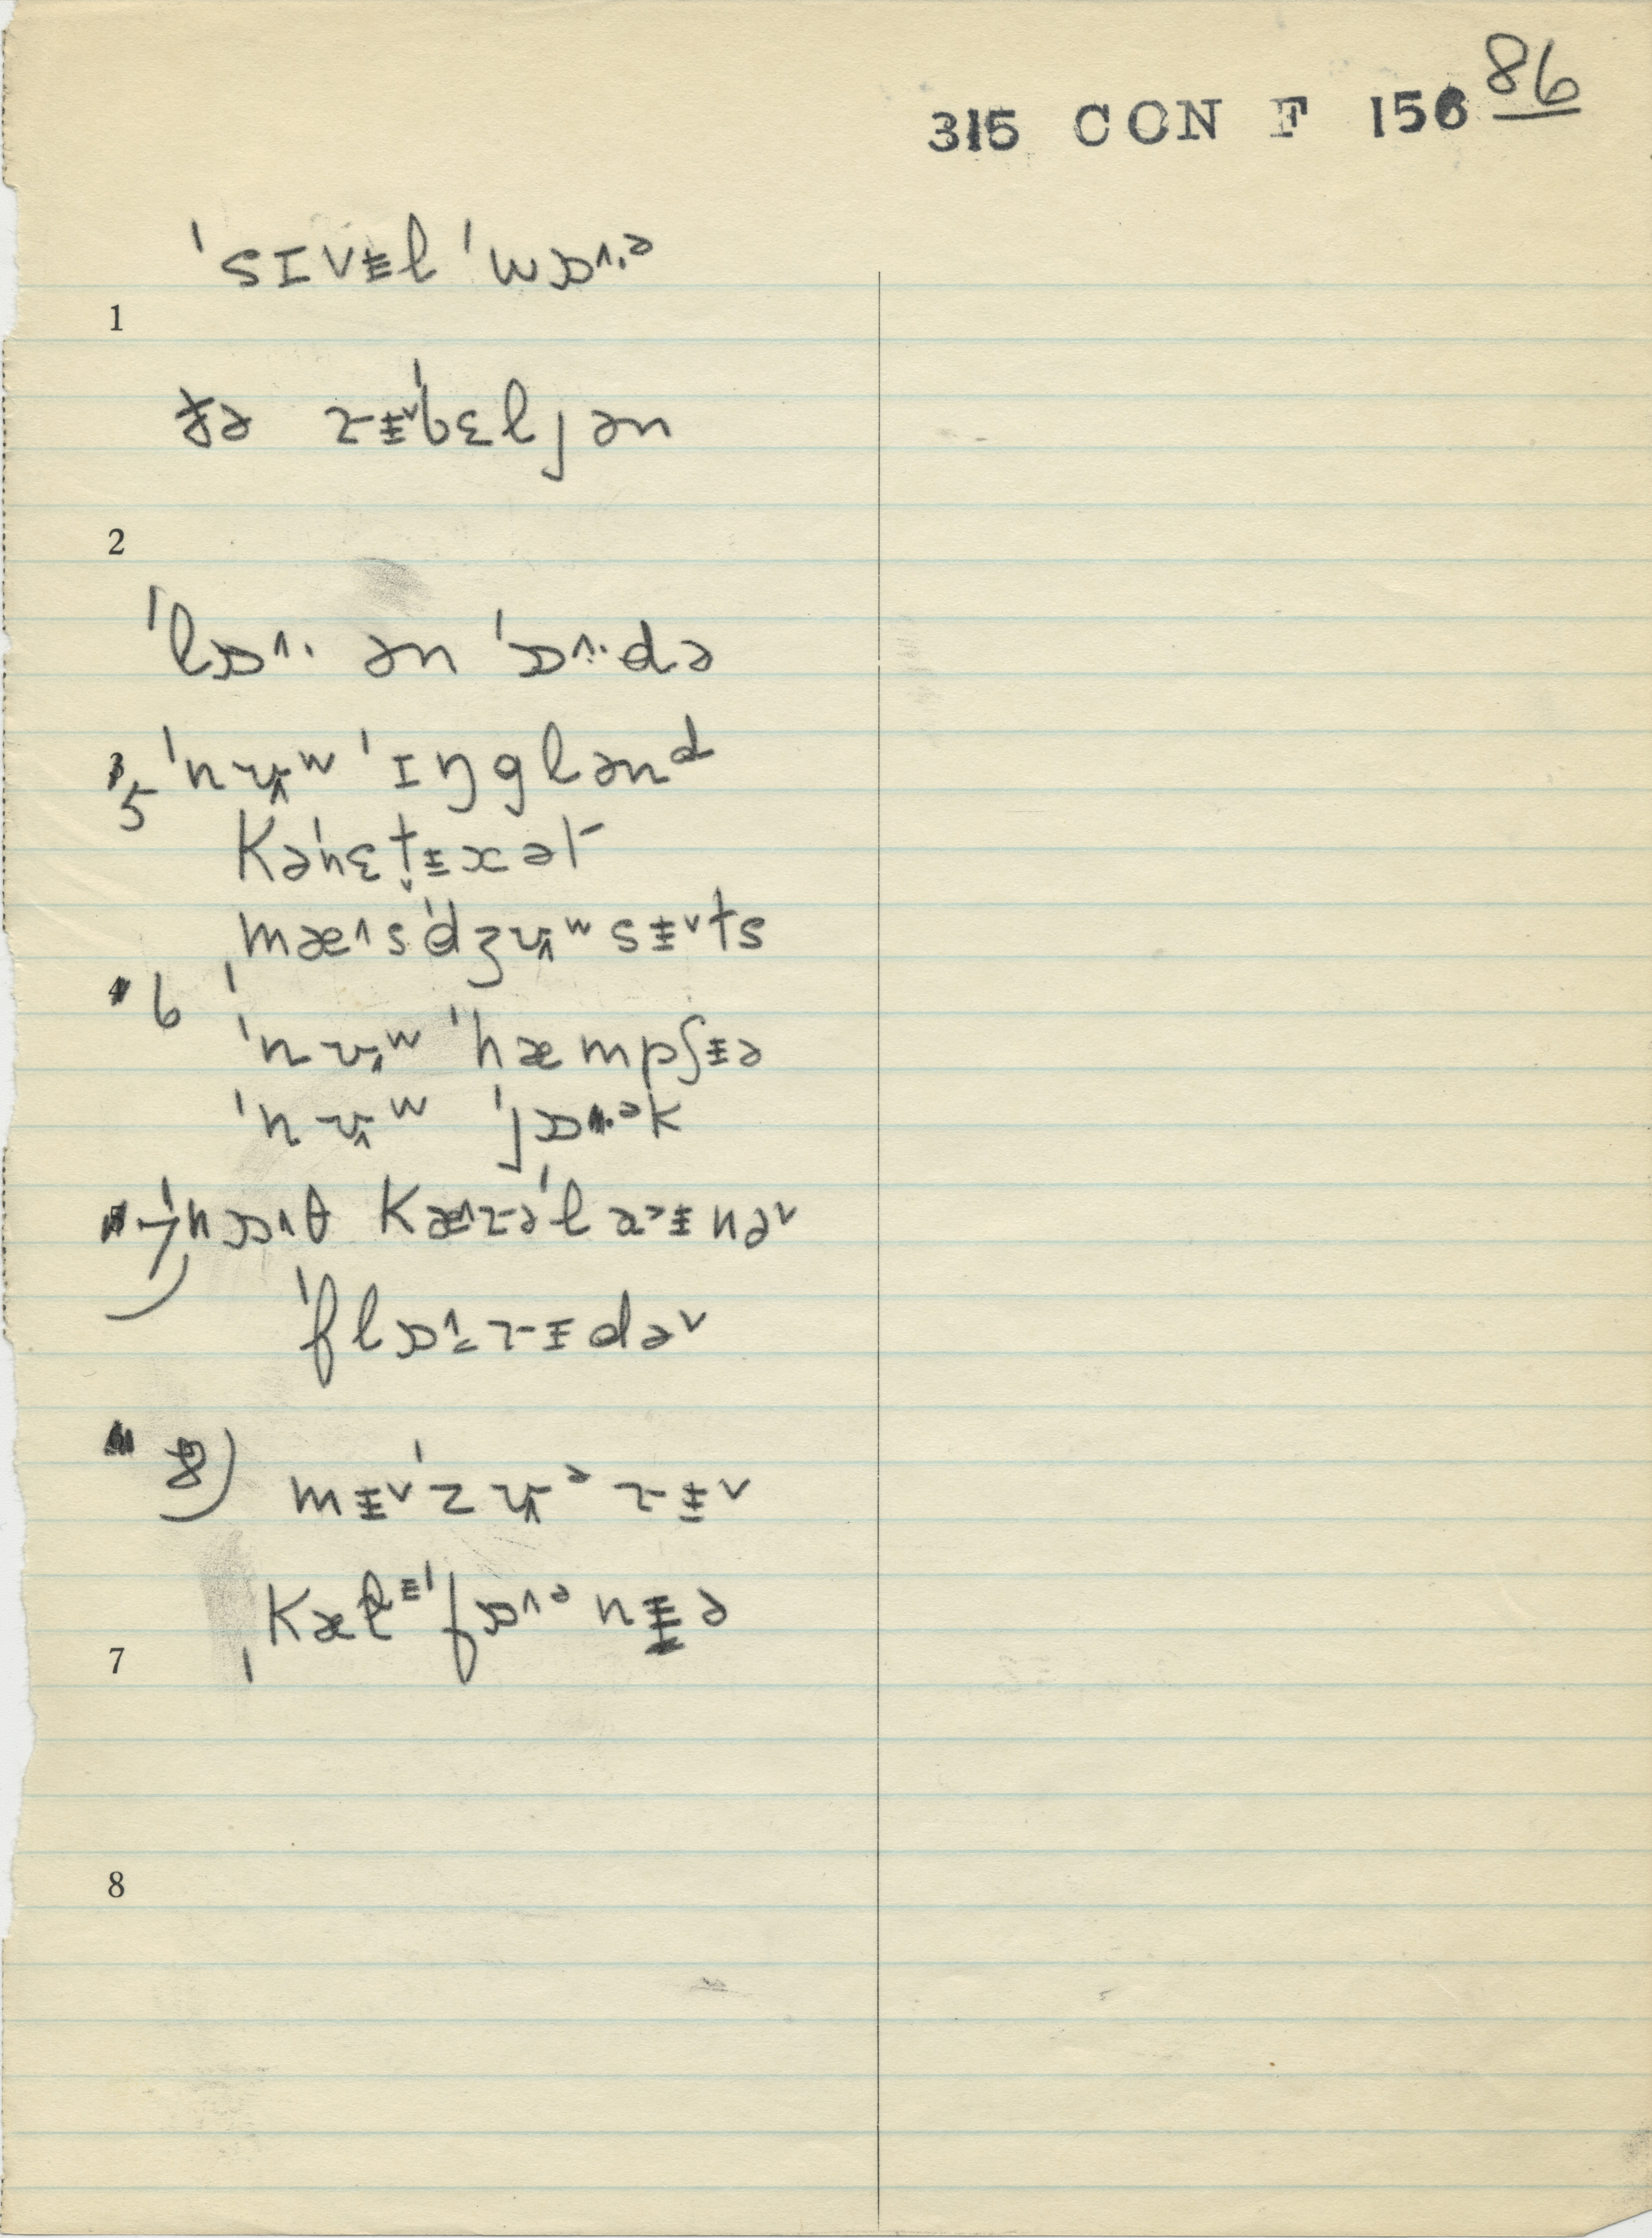 86
315 CON F 156
ˈsɪvɨl ˈwɒ˄·ᵊ
1
ðə rɨ˅ˈbɛljən
2
ˈlɒ˄· ən ˈɒ˄·də
3 5 ˈnʉ˄ʷ ˈɪŋglənᵈ
kəˈnɛt̬ɨkət
mæ˄sˈdʒʉ˄ʷsɨ˅ts
4 6
ˈnʉ˄ʷ ˈhæmpʃɨə
ˈnʉ˄ʷ ˈjɒ˄·ᵊk
7) ˈnɒ˄θ kæ˄rəˈlaɨnə˅
ˈflɒ˄rɨdə˅
8) mɨ˅ˈzʉ˄ᵊrɨ˅
ˌkælᵻˈfɒ˄ᵊnɨə
7
8